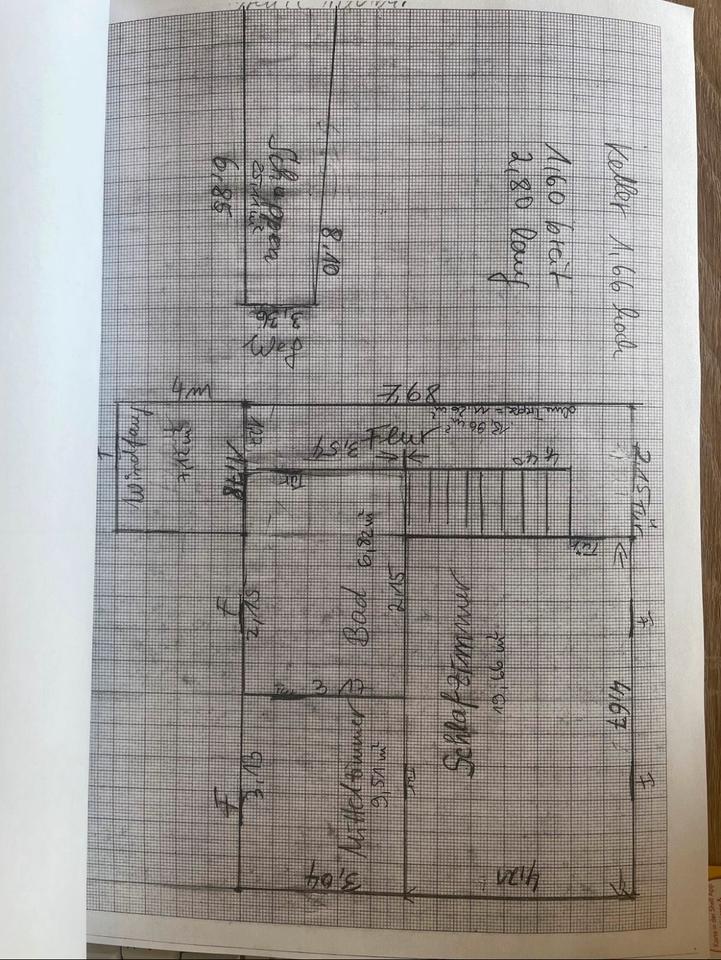 Keller 1,66 hoch
1,60 breit
2,80 lang
Schuppen
25,11 m²
6,85
8,10
3,36
m 4
Windfang
7,12 m²
F
897
Flur
13,96 m²
ohne Treppe = 11,26 m²
3,54
1,78
Tür
4,40
2,15
Tür
Tür
Bad
6,82 m²
2,15
2,15
F
Schlafzimmer
19,66 m²
4,67
F
F
Mittelzimmer
9,51 m²
Tür
3,13
F
3,04
4,21